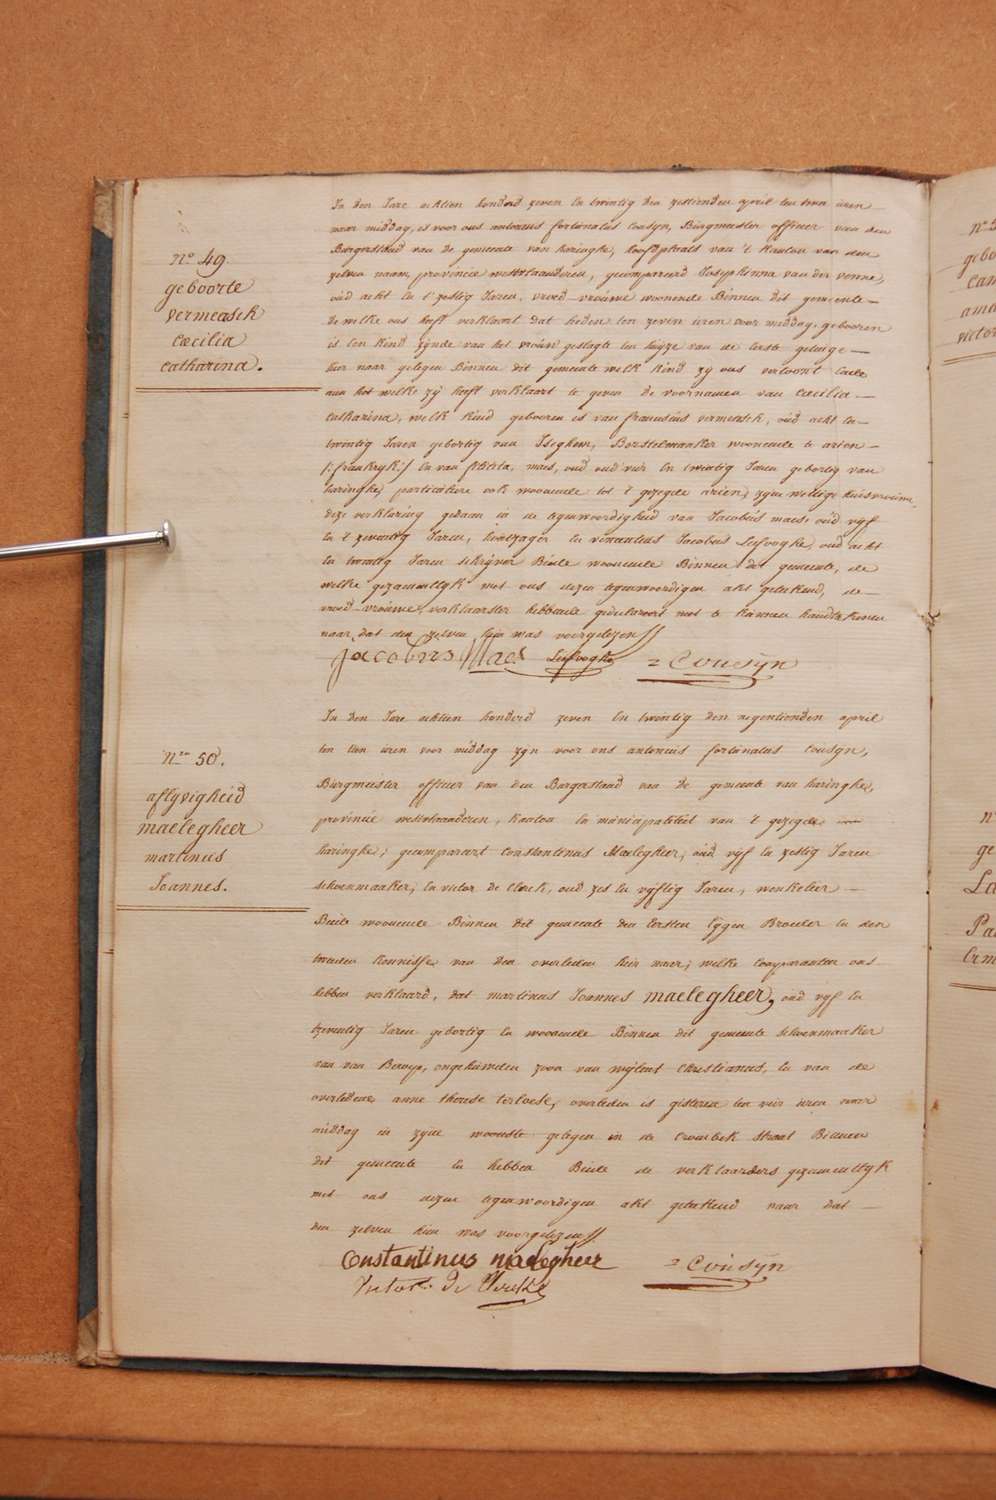 N.º 49.
geboorte
vermeasch
Cæcilia
Catharina.
In den Jare achtien honderd zeven en twintig den zestienden april ten twee uren
naer middag, is voor ons antonius fortunatus Cousyn, Burgmeester officier van den
Borgerstand van de gemeente van haringhe, hoofdplaats van 't kanton van den
zelven naam, provincie westvlaanderen, gecompareerd Josephinna van der venne,
oud acht en t'zestig Jaren, vroed-vrouwe woonende Binnen dit gemeente
de welke ons heeft verklaart dat heden ten zeven uren voor middag, gebooren
is een kind zynde van het vrouw geslagte ten huyze van de eerste getuige
hier naar gelegen Binnen dit gemeente welk kind zy ons vertoont ende
aan het welke zy heeft verklaart te geven de voornamen van Cæcilia
Catharina, welk kind gebooren is van franciscus vermeasch, oud acht en
twintig Jaren gebortig van Iseghem, Borstelmaaker woonende te arien
/:frankryk:/ en van maes, oud vier en twintig Jaren gebortig van
haringhe particuliere ook woonende tot 't gezegde arien, zyne wettige huisvrouwe
deze verklaring gedaan in de tegenwoordigheid van Jacobus maes, oud vyf
en t'zeventig Jaren, houtzager en vincentius Jacobus Liefooghe, oud acht
en twintig Jaren schryver Beide woonende Binnen dit gemeente, de
welke gezamentlyk met ons dezen tegenwoordigen akt geteekend, de
vroed-vrouwe verklaarster hebbende gedeclareert niet te kunnen handteekenen
naar dat den zelven hun was voorgelezen
Jacobus Maes Liefooghe Cousyn
N.ro 50.
aflyvigheid
maelegheer
martinus
Joannes.
In den Jare achtien honderd zeven en twintig den negentienden april
ten tien uren voor middag zyn voor ons antonius fortunatus Cousyn,
Burgmeester officier van den Borgerstand van de gemeente van haringhe,
provincie westvlaanderen, kanton en municipaliteit van 't gezegde
haringhe; gecompareert Constantinus Maelegheer, oud vyf en zestig Jaren
schoenmaaker, en victor de Clerck, oud zes en vyftig Jaren, winkelier
Beide woonende Binnen dit gemeente den eersten eygen Broeder en den
tweeden kennisse van den overleden hier naer; welke comparanten ons
hebben verklaard, dat martinus Joannes maelegheer, oud vyf en
tzeventig Jaren gebortig en woonende Binnen dit gemeente schoenmaaker
van van Beroep, ongehuwden zoon van wylent Christianus, en van de
overledene anne therese terloese, overleden is gisteren ten vier uren naer
middag in zyne woonste gelegen in de Crombek straat Binnen
dit gemeente en hebben Beide de verklaarders gezamentlyk
met ons dezen tegenwoordigen akt geteekend naar dat
den zelven hun was voorgelezen
Constantinus maelegheer Cousyn
Victor De Clercke
N.º
gebo
Cam
ama
victor
n
ge
La
Pa
Erm